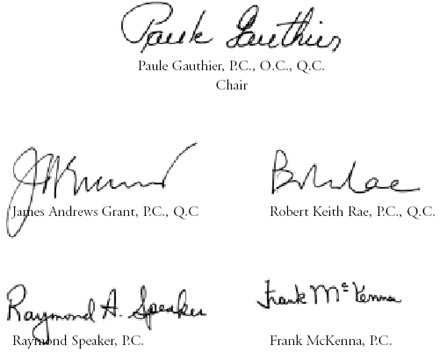 Paule Gauthier
Paule Gauthier, P.C., O.C., Q.C.
Chair
James Andrews Grant, P.C., Q.C
Bob Rae
Robert Keith Rae, P.C., Q.C.
Raymond A. Speaker
Raymond Speaker, P.C.
Frank McKenna
Frank McKenna, P.C.